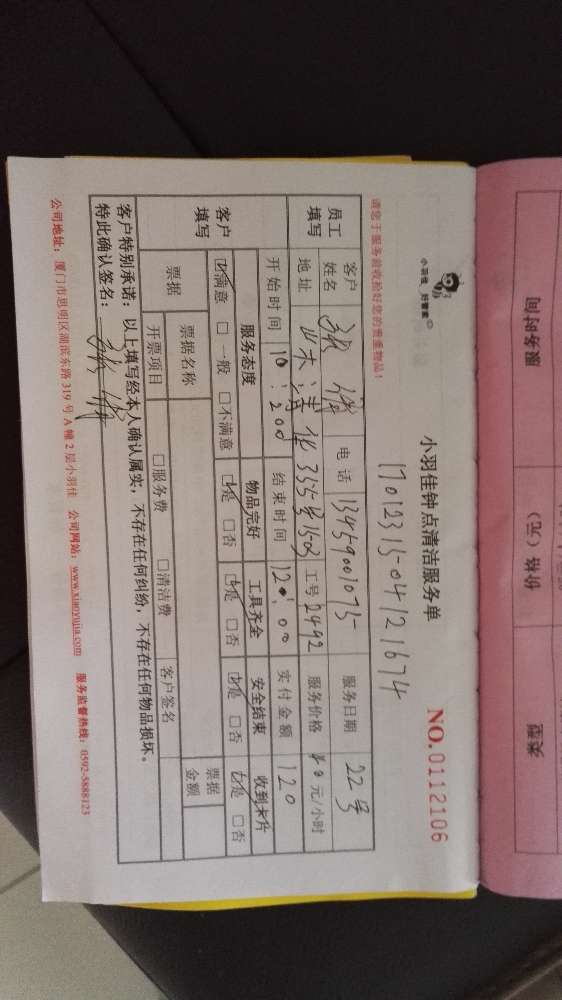 小羽佳 好管家
小羽佳钟点清洁服务单
NO.0112106
17012315-04121674
请您于服务前收检好您的贵重物品！
员工填写
客户姓名 电话 13459001075 服务日期 22号
地址 355号1503 工号 2492 服务价格 40元/小时
开始时间 10:200 结束时间 120:00 实付金额 120
客户填写
服务态度 物品完好 工具齐全 安全结束 收到卡片
☑满意 □一般 □不满意 ☑是 □否 ☑是 □否 ☑是 □否 ☑是 □否
票据 票据名称 票据金额
开票项目 □服务费 □清洁费 客户签名
客户特别承诺：以上填写经本人确认属实，不存在任何纠纷，不存在任何物品损坏。
特此确认签名：
公司地址：厦门市思明区湖滨东路319号A幢2层小羽佳 公司网站：www.xiaoyujia.com 服务监督热线：0592-5888123
服务时间
价格（元）